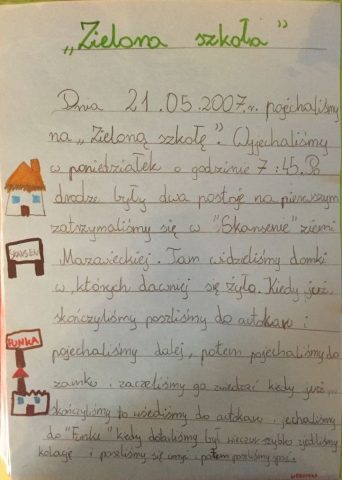 „Zielona szkoła"
Dnia 21.05.2007.r. pojechaliśmy
na „Zieloną szkołę". Wyjechaliśmy
w poniedziałek o godzinie 7:45. Po
drodze były dwa postoje na pierwszym
zatrzymaliśmy się w "Skansenie" ziemi
Mazawieckiej. Tam widzieliśmy domki
SKANSEN
w których dawniej się żyło. Kiedy już
skończyliśmy poszliśmy do autokaru i
FUNKA
pojechaliśmy dalej, potem pojechaliśmy do
zamku i zaczeliśmy go zwiedzać kiedy już
skończyliśmy to wsiedliśmy do autokaru i jechaliśmy
do "Funki" kiedy dotarliśmy był wieczur szybko zjedliśmy
kolację i poszliśmy się umyć i potem poszliśmy spać.
WERONIKA